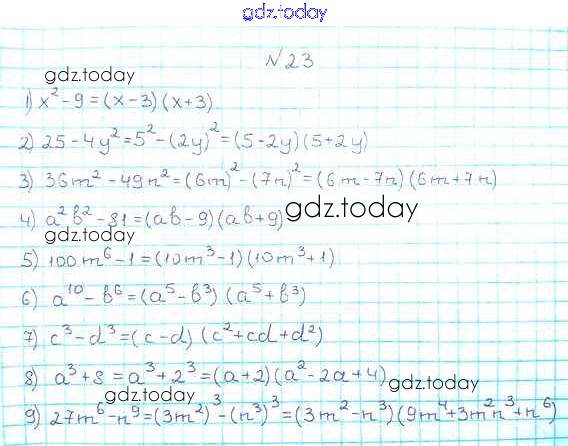 gdz.today
N23
gdz.today
1) x² - 9 = (x - 3)(x + 3)
2) 25 - 4y² = 5² - (2y)² = (5 - 2y)(5 + 2y)
3) 36m² - 49n² = (6m)² - (7n)² = (6m - 7n)(6m + 7n)
4) a²b² - 81 = (ab - 9)(ab + 9) gdz.today
gdz.today
5) 100m⁶ - 1 = (10m³ - 1)(10m³ + 1)
6) a¹⁰ - b⁶ = (a⁵ - b³)(a⁵ + b³)
7) c³ - d³ = (c - d)(c² + cd + d²)
8) a³ + 8 = a³ + 2³ = (a + 2)(a² - 2a + 4) gdz.today
9) 27m⁶ - n⁹ = (3m²)³ - (n³)³ = (3m² - n³)(9m⁴ + 3m²n³ + n⁶)